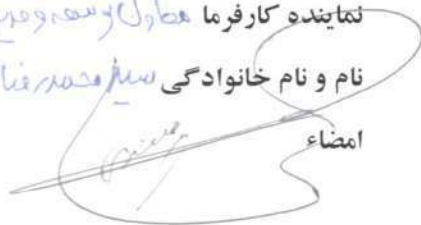 نماینده کارفرما معاون توسعه و مدیر
نام و نام خانوادگی سید محمدرضا
امضاء